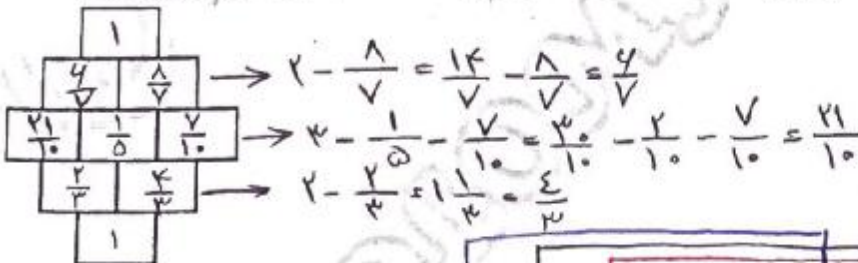 ۱
۶/۷ ۸/۷ → ۲ - ۸/۷ = ۱۴/۷ - ۸/۷ = ۶/۷
۲۱/۱۰ ۱/۵ ۷/۱۰ → ۳ - ۱/۵ - ۷/۱۰ = ۳۰/۱۰ - ۲/۱۰ - ۷/۱۰ = ۲۱/۱۰
۲/۳ ۴/۳ → ۲ - ۲/۳ = ۱ ۱/۳ = ۴/۳
۱